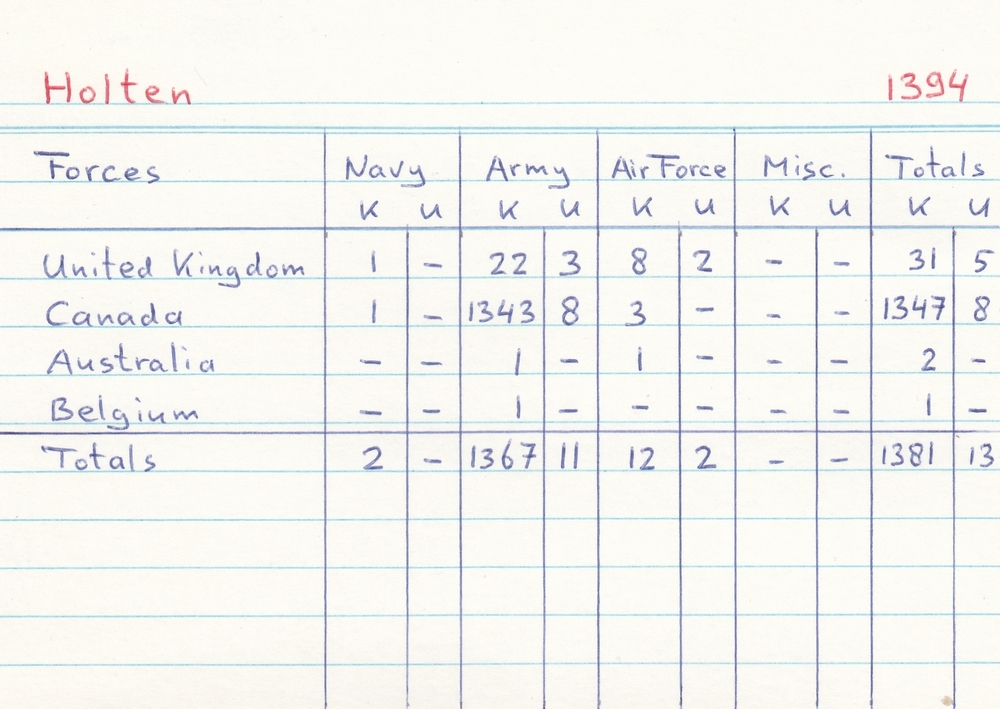 Holten 1394
Forces Navy Army Air Force Misc. Totals
K U K U K U K U K U
United Kingdom 1 - 22 3 8 2 - - 31 5
Canada 1 - 1343 8 3 - - - 1347 8
Australia - - 1 - 1 - - - 2 -
Belgium - - 1 - - - - - 1 -
Totals 2 - 1367 11 12 2 - - 1381 13